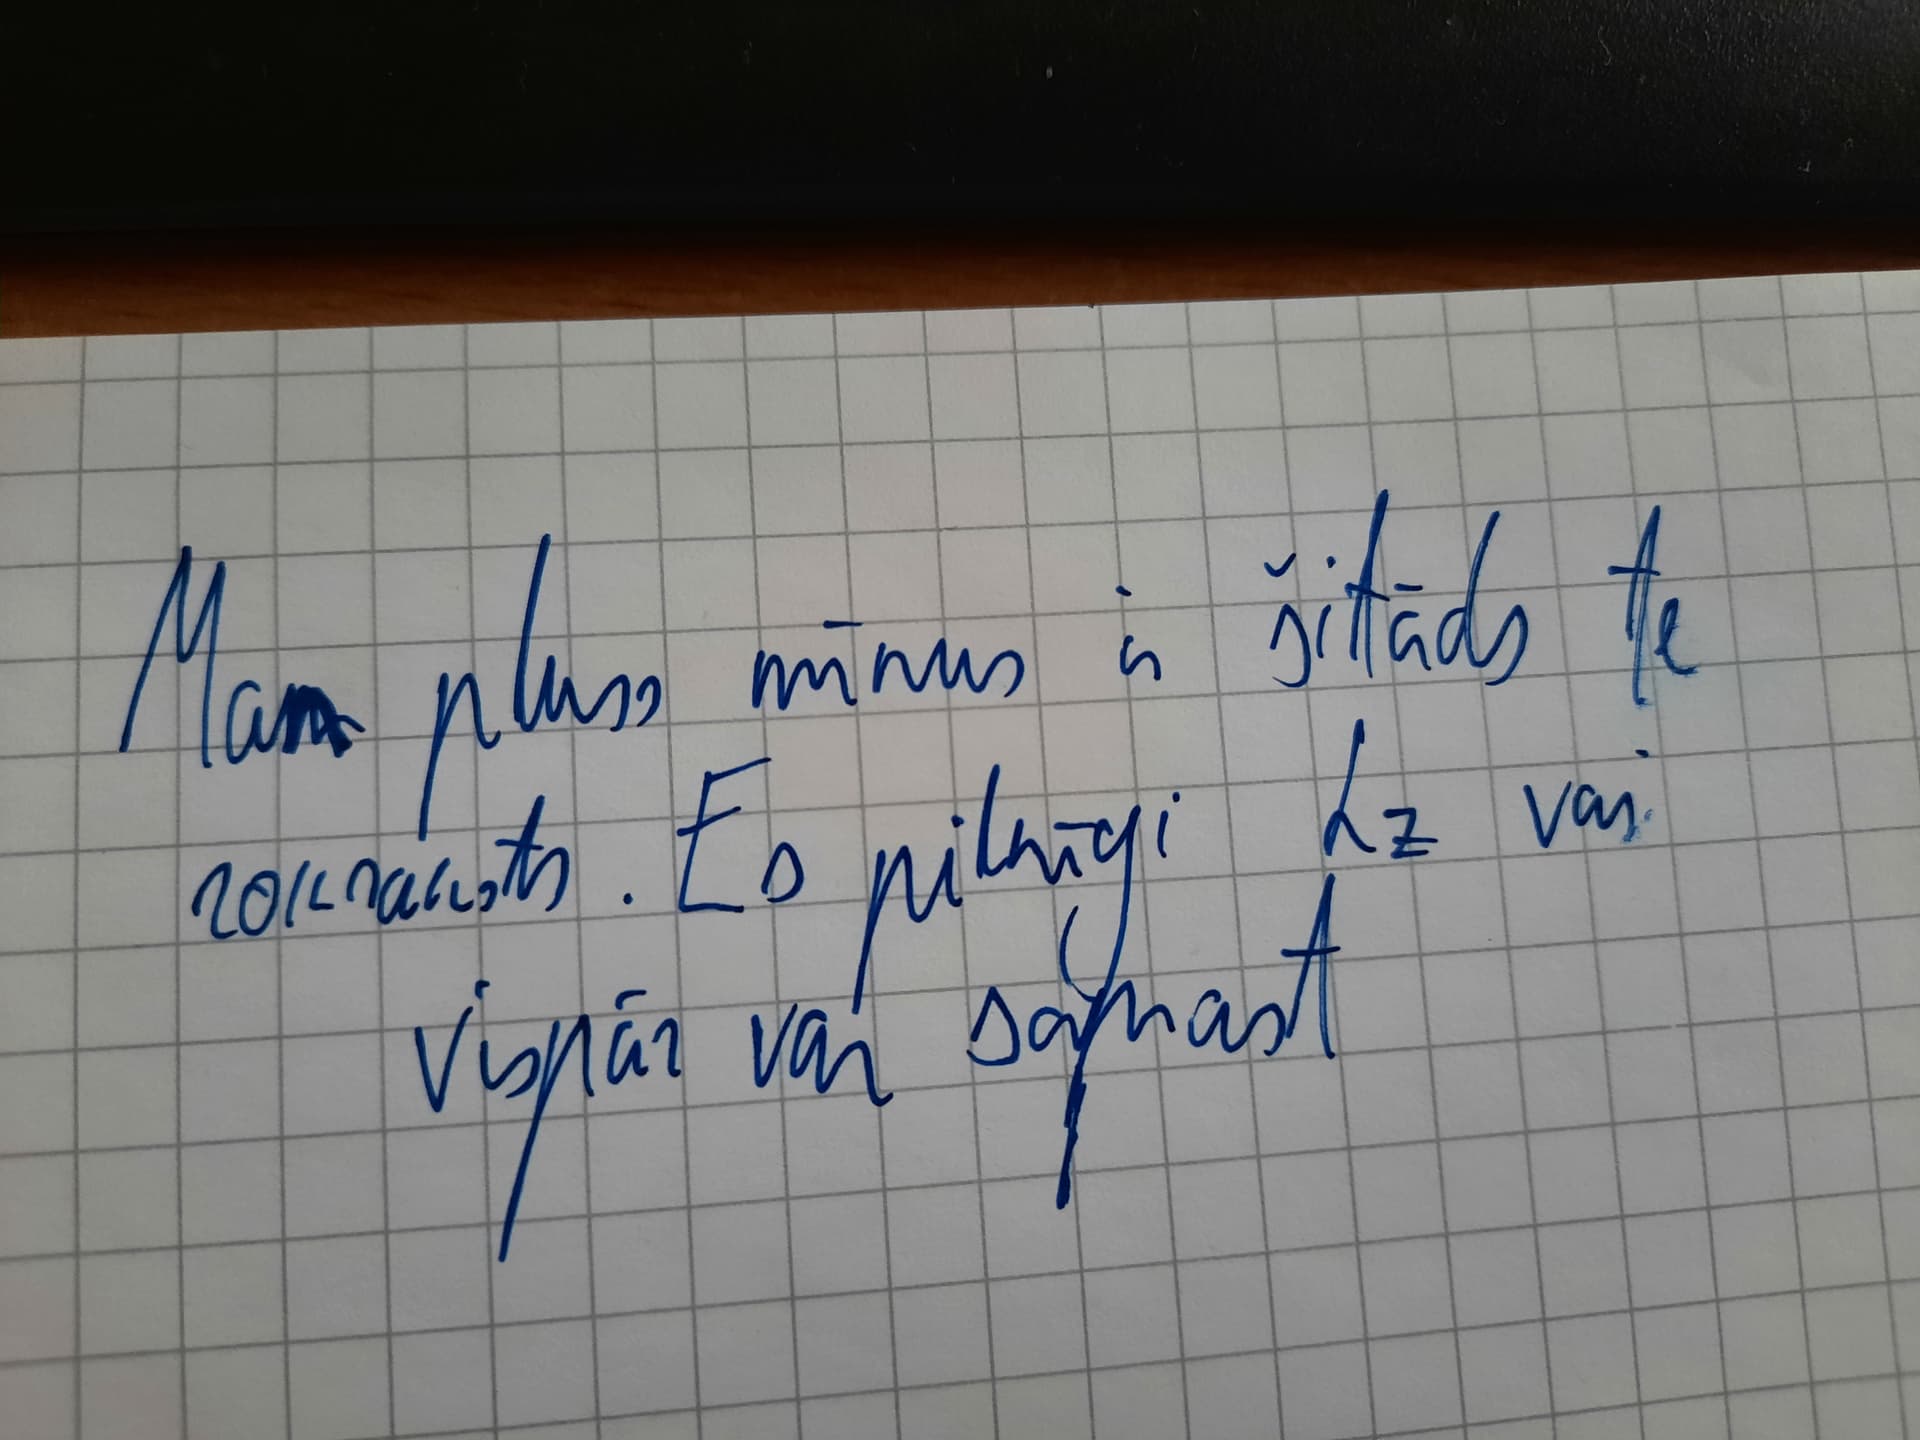 Man pluss mīnus ir šitāds te
rokraksts. Es pilnīgi hz vai
vispār var saprast